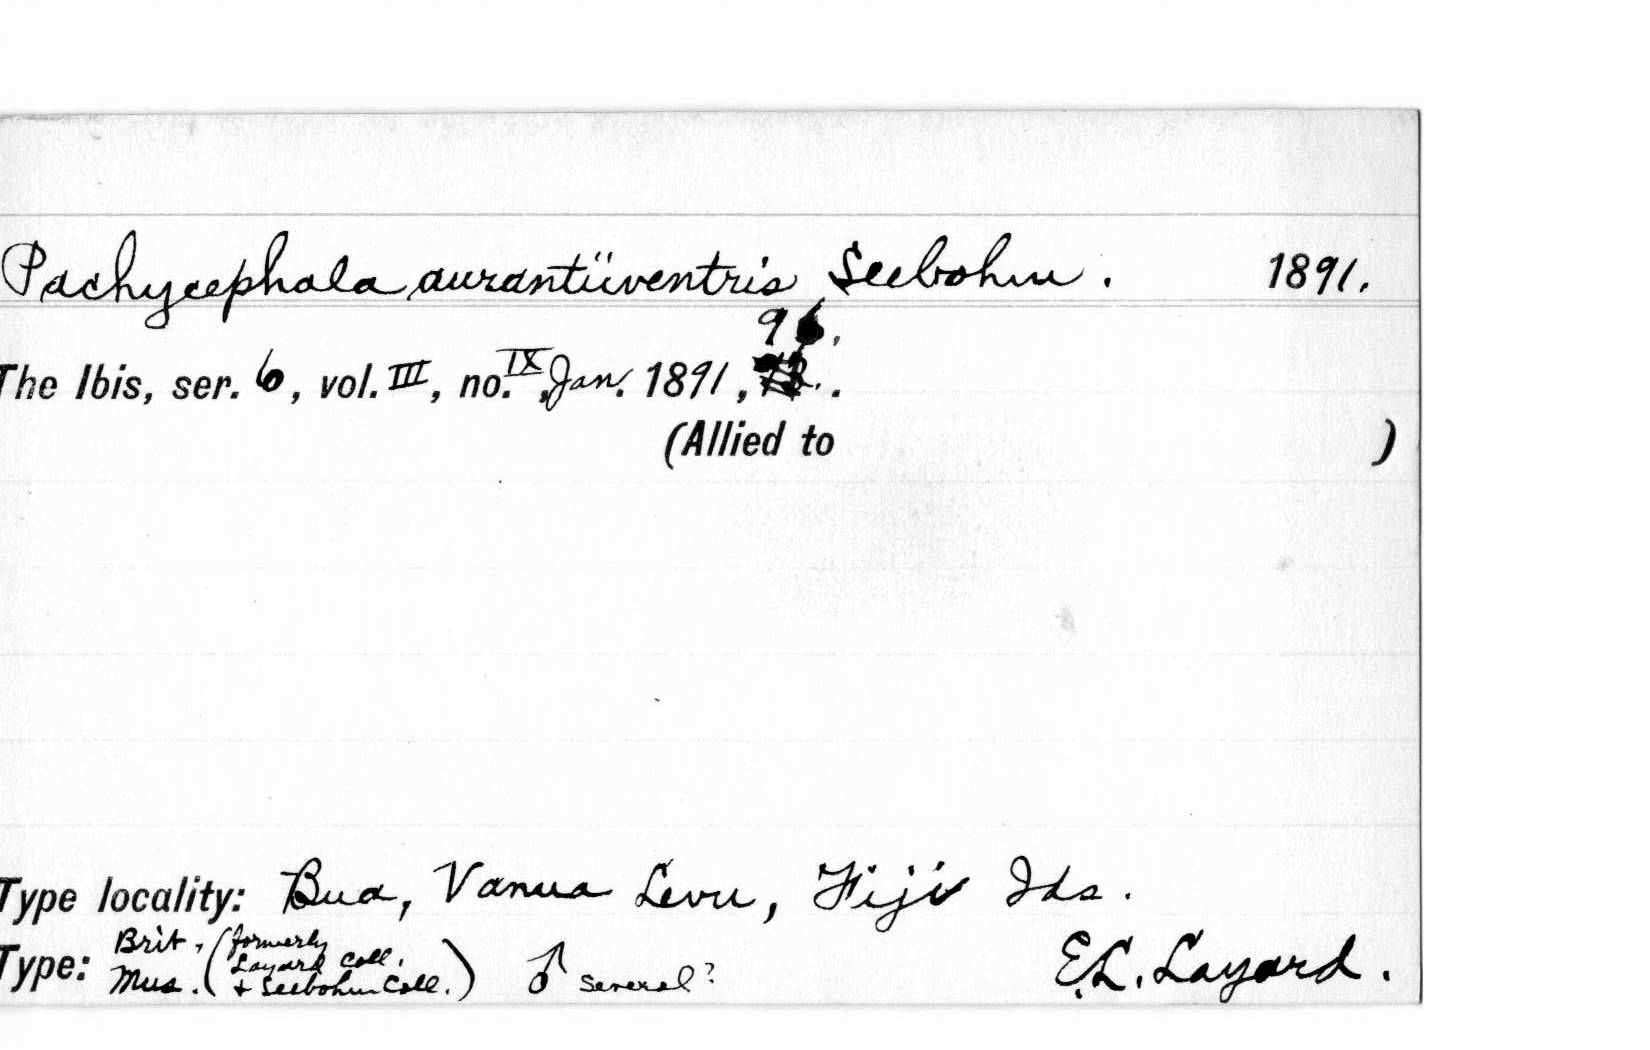 Pachycephala aurantiiventris Seebohm. 1891.
96.
The Ibis, ser. 6, vol. III, no. IX, Jan. 1891, .
(Allied to )
Type locality: Bua, Vanua Levu, Fiji Ids.
Type: Brit. Mus. (formerly Layard Coll. + Seebohm Coll.) ♂ several? E.L. Layard.